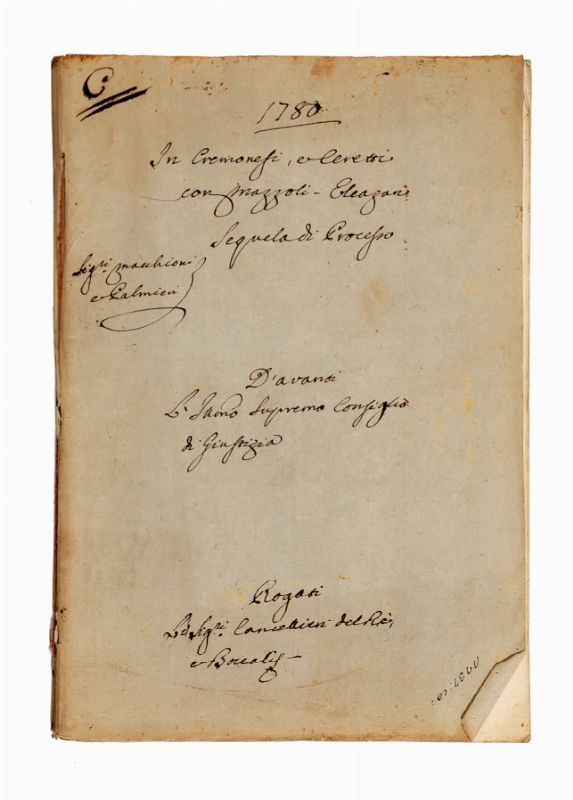 C
1780
In Cremonesi, e Ceretti
con Mazzoli - Eleazari
Sequela di Processo
Sig:ri Macchioni
e Palmieri
D'avanti
L' Supremo Consiglio
di Giustizia
Rogati
Sig:ri Cancellieri del Rè,
e